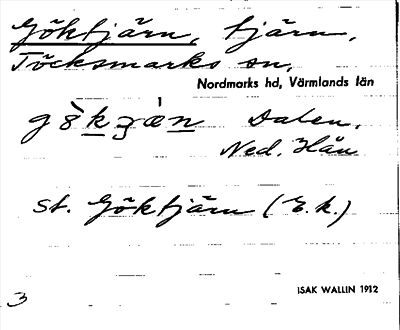 Göktjärn, tjärn,
Töcksmarks sn,
Nordmarks hd, Värmlands län
Dalen,
Ned. Hån
St. Göktjärn (E.k.)
3
ISAK WALLIN 1912